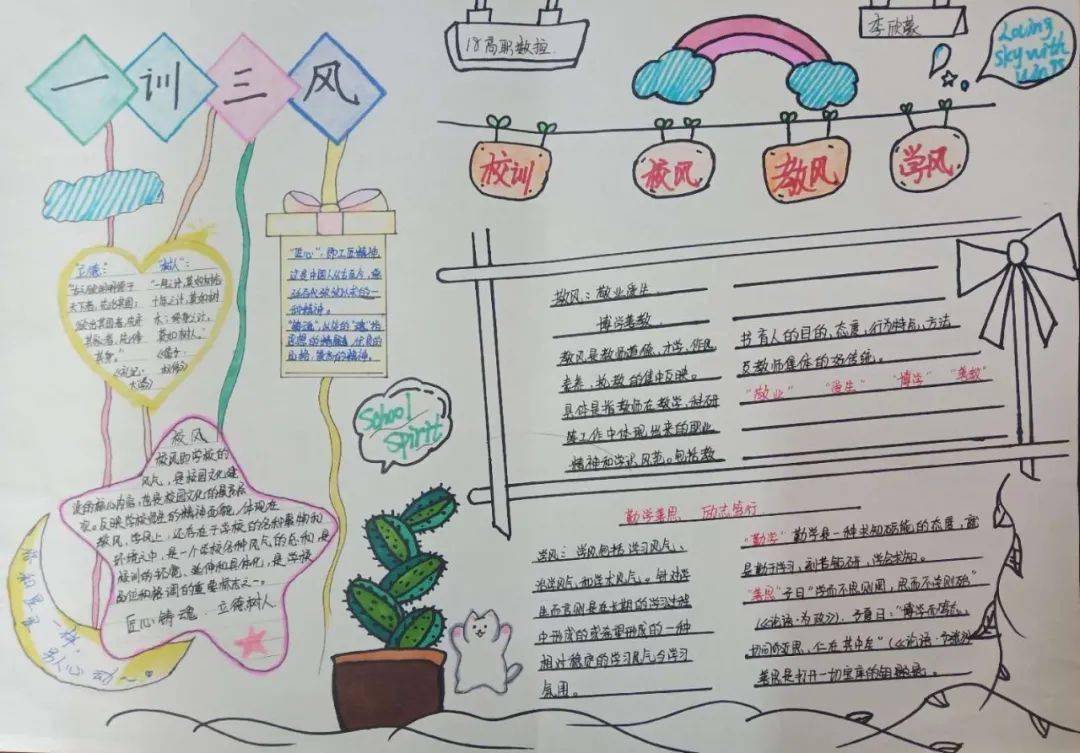 一训三风
18高职数控
李欣蒙
Loving
sky with
校训
校风
教风
学风
立德：
天下者，先治其国；
欲治其国者，先齐
其家；
其身。”
大学》
“树人”：
“一年之计，莫如树谷
十年之计，莫如树
木；终身之计，
莫如树人。”
《管子·
“匠心”：即工匠精神
这是中国人从古至今，绵
的精神。
品格，
的精神。
School
spirit
校风
校风即学校的
风气，是校园文化建
设的核心内容，也是校园文化的最高表
现。反映学校师生的精神面貌，体现在
教风、学风上，还存在于学校的各种事物和
环境之中，是一个学校各种风气的总和，是
校训的拓宽、延伸和具体化，是学校
品位和格调的重要标志之一。
匠心铸魂 立德树人
一样，
教风：敬业爱生
博学善教
教风是教师道德、才学、作风
素养、执教的集中反映。
具体是指教师在教学、科研
等工作中体现出来的职业
精神和学识风范。包括教
书育人的目的、态度、行为特点、方法
及教师集体的好传统。
“敬业” “爱生” “博学” “善教”
勤学善思 励志笃行
学风：学风包括学习风气、
治学风气和学术风气。针对学
生而言则是在长期的学习过程
中形成的或态要形成的一种
相对稳定的学习风气与学习
氛围。
“勤学” 勤学是一种求知砺能的态度，就
是勤于学习，刻苦钻研，学会求知。
“善思”子曰“学而不思则罔，思而不学则殆”
《论语·为政》，子夏曰：“博学而笃志，
切问而近思，仁在其中矣”《论语·子张》
善思是打开一切宝库的钥匙。